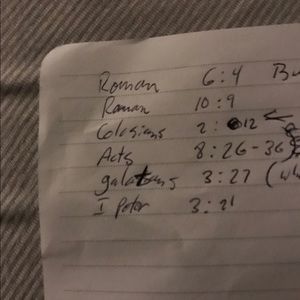 Roman 6:4 Bu
Roman 10:9
Colosians 2:12
Acts 8:26-36
galatians 3:27 (wh
I Peter 3:21